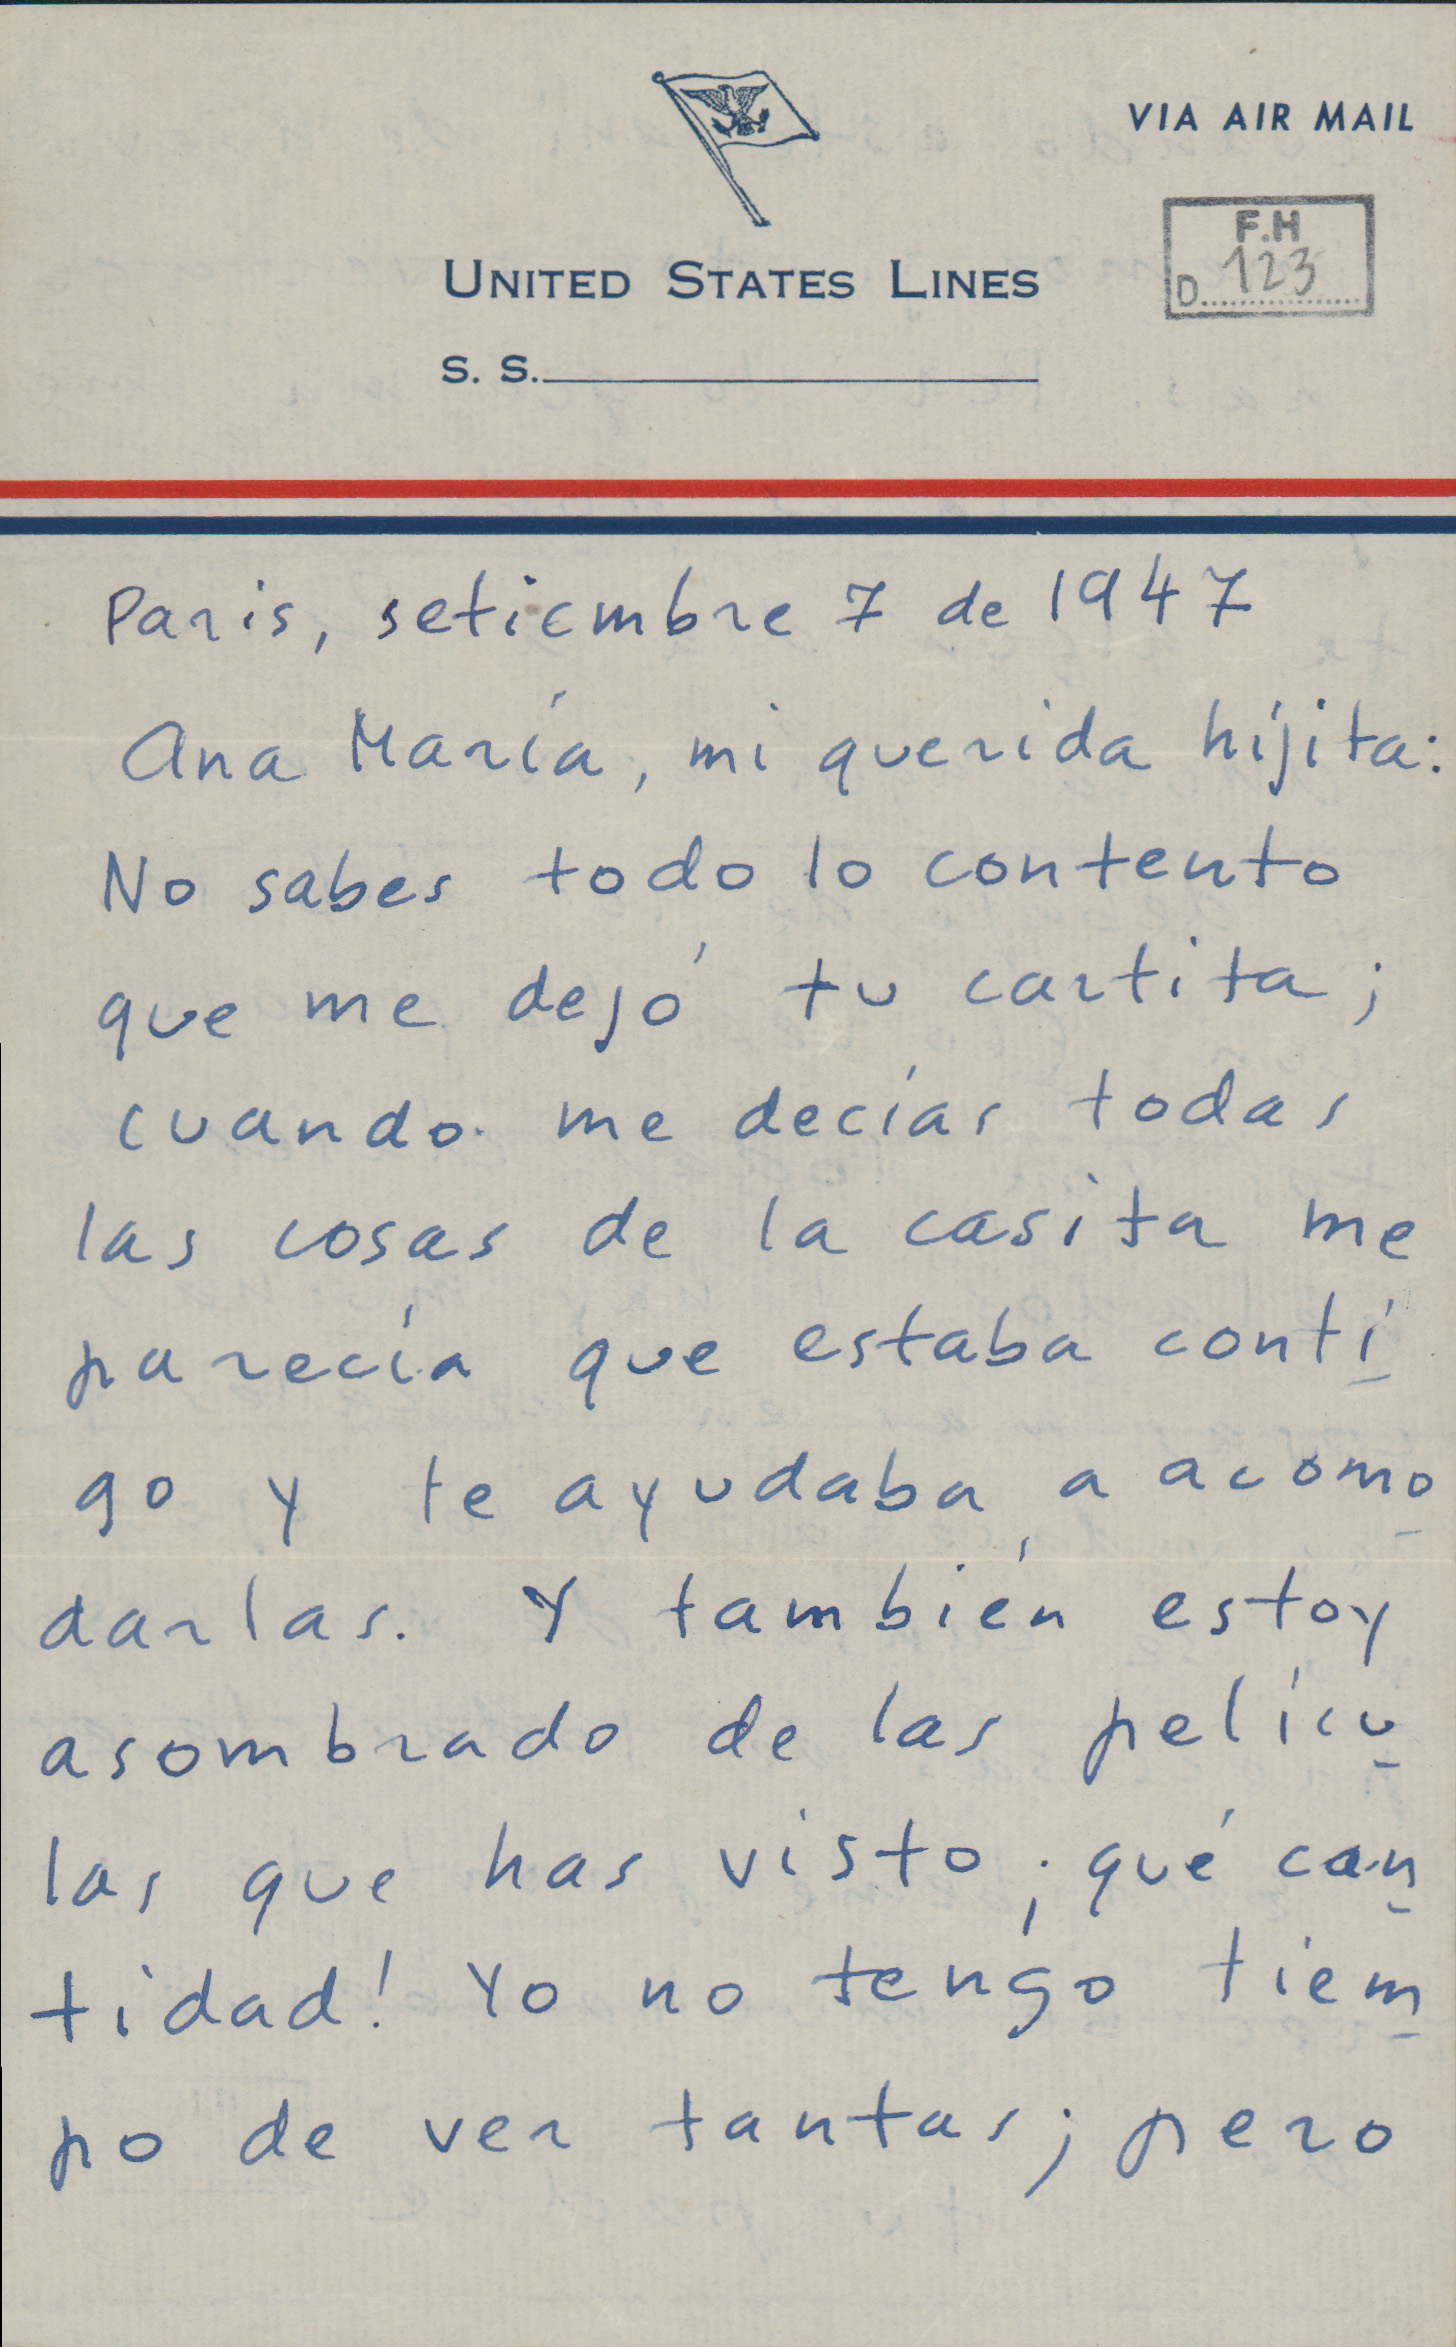 VIA AIR MAIL
F.H
D. 123
UNITED STATES LINES
S. S.
Paris, setiembre 7 de 1947
Ana María, mi querida hijita:
No sabes todo lo contento
que me dejó tu cartita;
cuando me decías todas
las cosas de la casita me
parecía que estaba conti
go y te ayudaba a acomo
darlas. Y también estoy
asombrado de las pelícu
las que has visto, ¡qué can
tidad! Yo no tengo tiem
po de ver tantas; pero